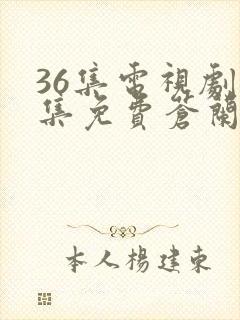 36集電視劇
集免費蒼蘭
本人楊建東